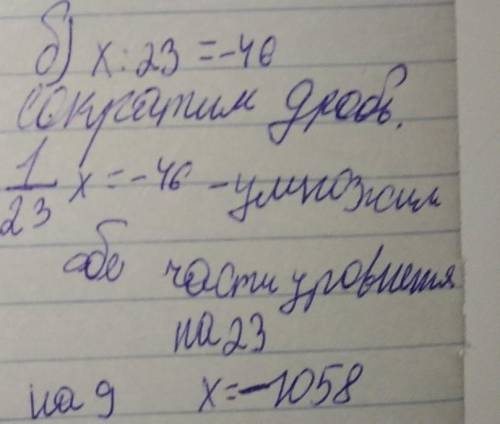 б) х : 23 = -46
Сократим дробь.
1/23 х = -46 - умножим
обе части уровнения
на 23
на 9 х = -1058